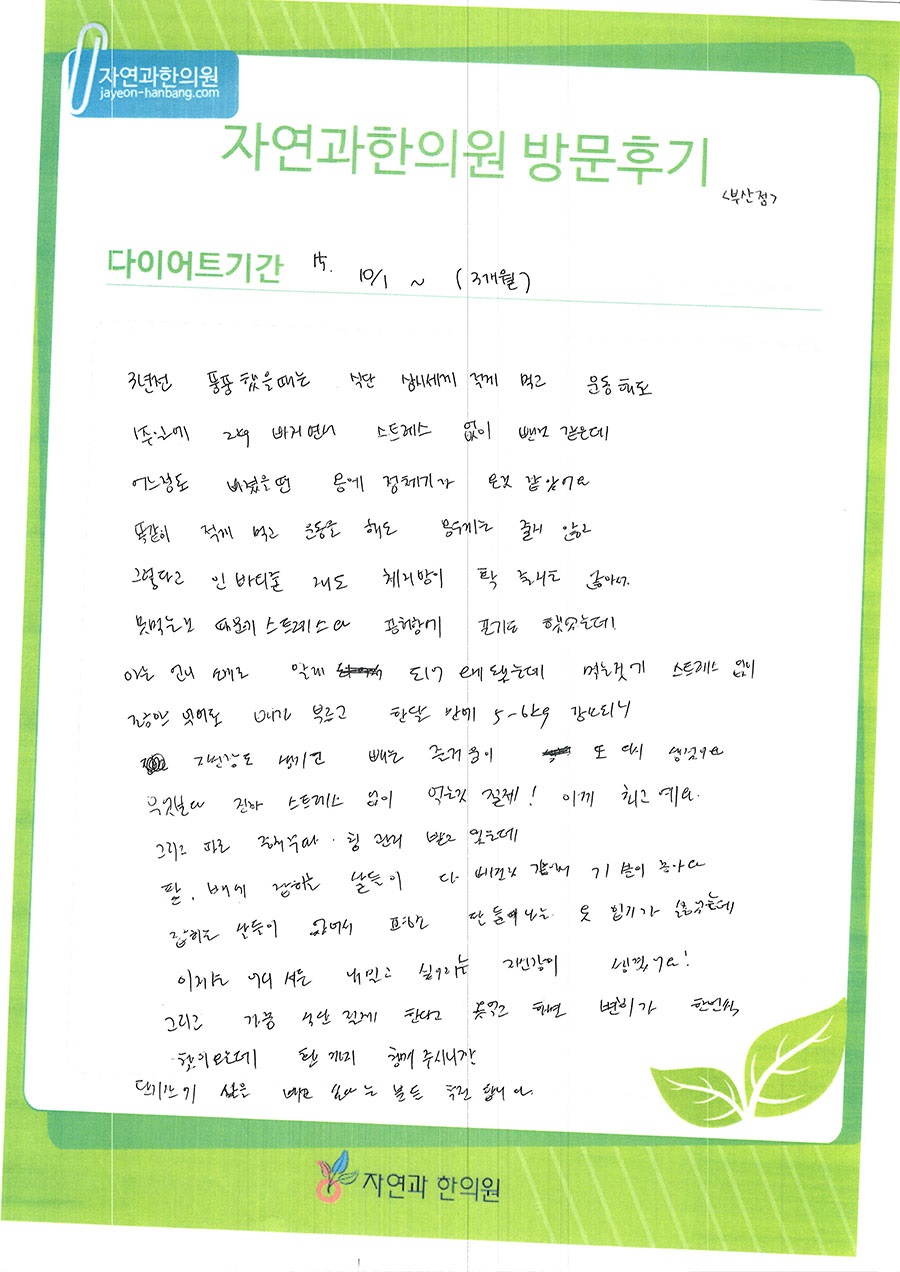 자연과한의원
jayeon-hanbang.com
자연과한의원 방문후기
<부산점>
다이어트기간 15. 10/1 ~ (3개월)
3년전 뚱뚱했을때는 식단 삼시세끼 적게 먹고 운동해도
1주일에 2kg 빠지면서 스트레스 없이 뺀것 같은데
어느정도 빠졌을땐 몸에 정체기가 온것 같았어요
똑같이 적게 먹고 운동을 해도 몸무게는 줄지 않고
그렇다고 인바디를 재도 체지방이 확 줄지도 않아서
못먹는것 때문에 스트레스와 공허함에 포기도 했었는데
아는 언니 소개로 알게 되게 됐는데 먹는것에 스트레스 없이
소량만 먹어도 배가 부르고 한달 만에 5-6kg 감소되니
자신감도 생기고 빼는 즐거움이 또 다시 생겼어요
무엇보다 진짜 스트레스 없이 먹는것 절제! 이게 최고예요.
그리고 따로 관리 받고 있는데
팔, 배에 잡히는 살들이 다 빠진것 같아 기분이 좋아요
잡히는 살들이 있어서 옷 입기가 싫었는데
이제는 내밀고 싶어지는 자신감이 생겼어요!
그리고 가끔 식단 적게 한다고 못먹고 하면 변비가 한번씩
찾아오는데 환까지 함께 주시니깐
단기간에 살을 빼고 싶다는 분들 추천 합니다.
자연과 한의원